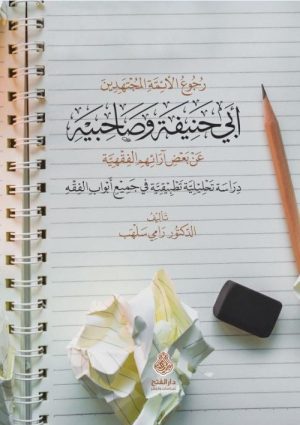 رُجُوعُ الأَئِمَّةِ المُجْتَهِدِينَ
أَبِي حَنِيفَةَ وَصَاحِبَيْهِ
عَنْ بَعْضِ آرَائِهِمِ الفِقْهِيَّةِ
دِرَاسَة تَحْلِيلِيَّة تَطْبِيقِيَّة فِي جَمِيعِ أَبْوَابِ الفِقْهِ
تَأليفُ
الدكتور رَامِي سَلْهَب
دار الفتح
للدراسات والنشر